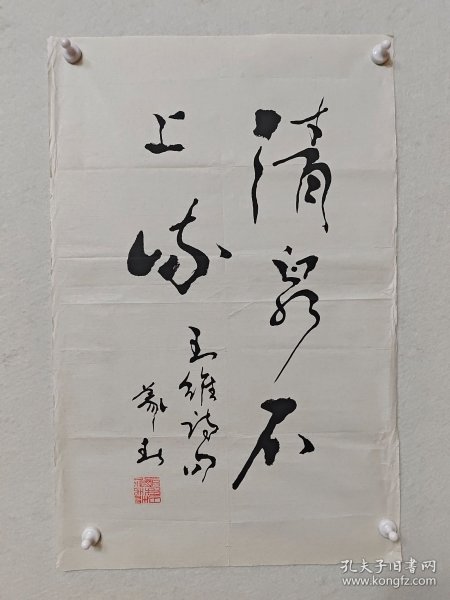 清泉石
上流
王维诗句
孔夫子旧书网
www.kongfz.com